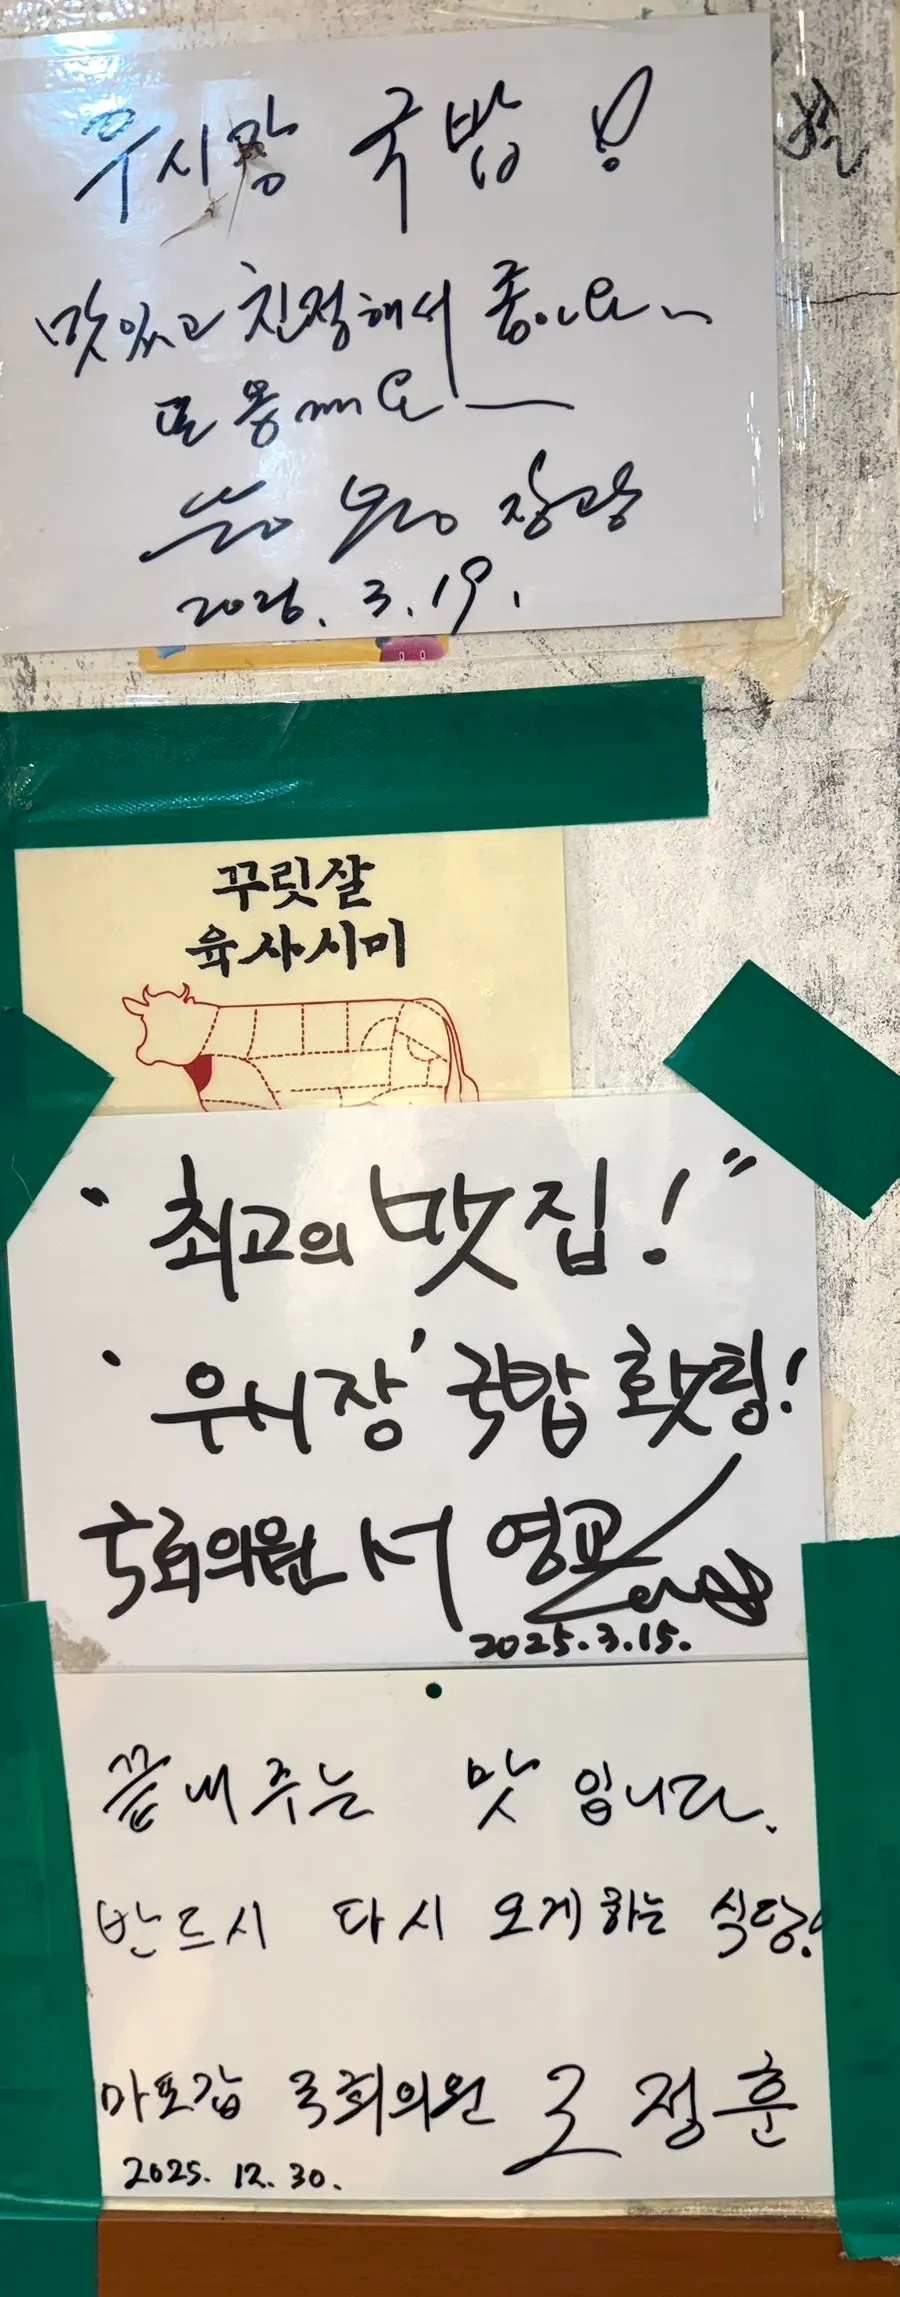 우시장 국밥!
맛있고 친절해서 좋아요~
또 올께요
장광
2026. 3. 19.
꾸릿살
육사시미
"최고의 맛집!"
'우시장' 국밥 홧팅!
국회의원 서영교
2025.3.15.
끝내주는 맛입니다.
반드시 다시 오게하는 식당!
마포갑 국회의원 조정훈
2025. 12. 30.